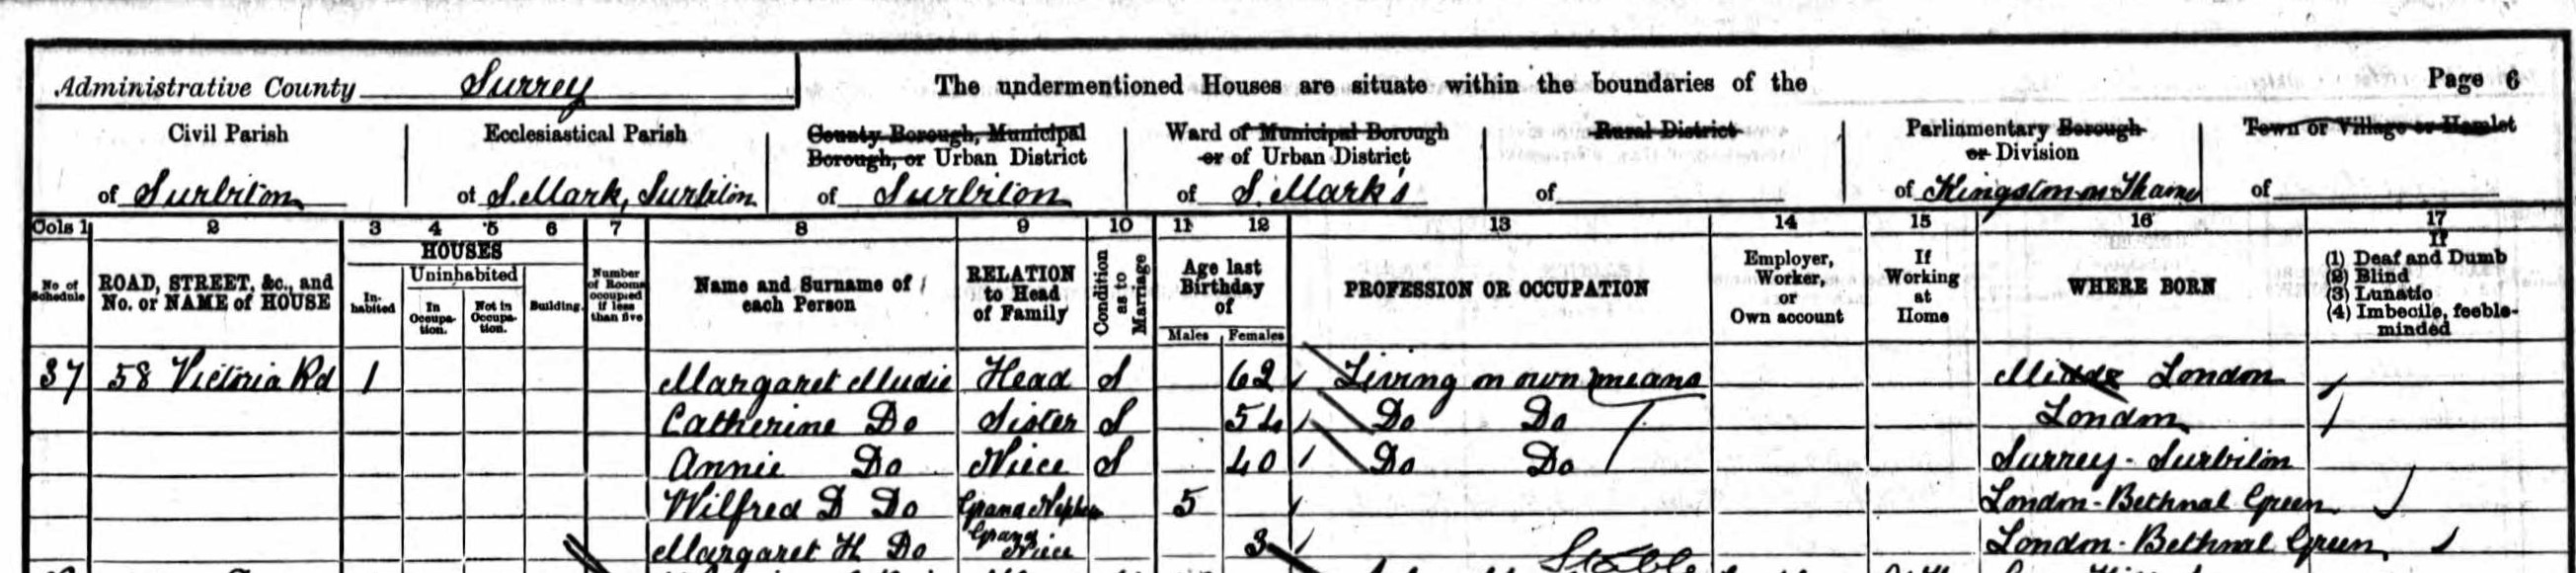 Administrative County Surrey
The undermentioned Houses are situate within the boundaries of the
Page 6
Civil Parish
of Surbiton
Ecclesiastical Parish
of S. Mark, Surbiton
County Borough, Municipal
Borough, or Urban District
of Surbiton
Ward of Municipal Borough
or of Urban District
of S. Mark's
Rural District
of
Parliamentary Borough
or Division
of Kingston on Thames
Town or Village or Hamlet
of
Cols 1 2 3 4 5 6 7 8 9 10 11 12 13 14 15 16 17
No. of
Schedule
ROAD, STREET, &c., and
No. or NAME of HOUSE
HOUSES
In-
habited
Uninhabited
In
Occupa-
tion.
Not in
Occupa-
tion.
Building.
Number
of Rooms
occupied
if less
than five
Name and Surname of
each Person
RELATION
to Head
of Family
Condition
as to
Marriage
Age last
Birthday
of
Males Females
PROFESSION OR OCCUPATION
Employer,
Worker,
or
Own account
If
Working
at
Home
WHERE BORN
If
(1) Deaf and Dumb
(2) Blind
(3) Lunatic
(4) Imbecile, feeble-
minded
37 58 Victoria Rd 1 Margaret Mudie Head S 62 Living on own means London
Catherine Do Sister S 54 Do Do London
Annie Do Niece S 40 Do Do Surrey - Surbiton
Wilfred D Do Grand Nephew 5 London - Bethnal Green
Margaret H Do Grand Niece 3 London - Bethnal Green